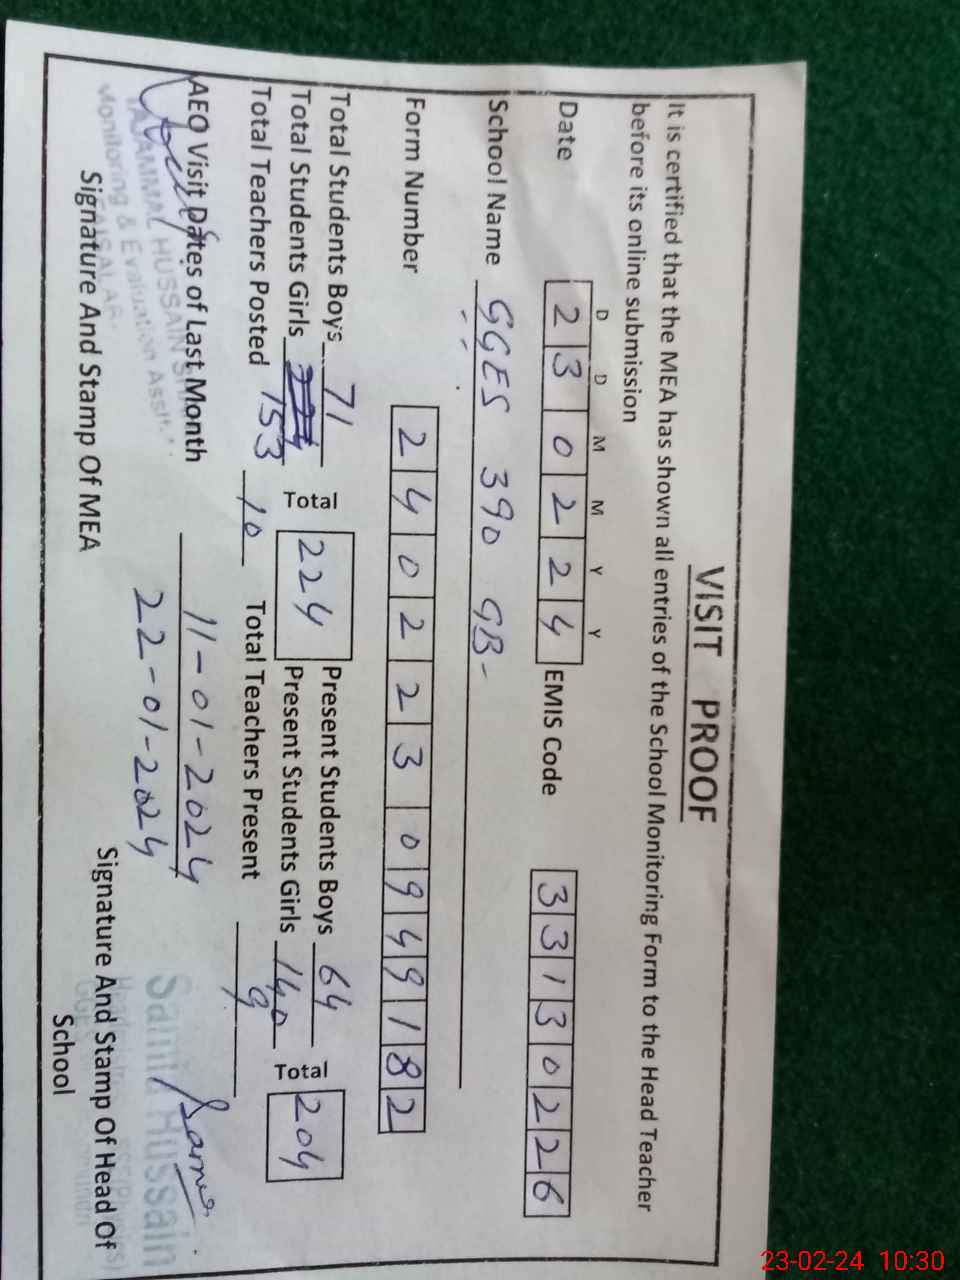 VISIT PROOF
It is certified that the MEA has shown all entries of the School Monitoring Form to the Head Teacher
before its online submission
D D M M Y Y
Date 230224 EMIS Code 33130226
School Name GGES 390 GB-
Form Number 240223 0949182
Total Students Boys 71 Total 224 Present Students Boys 64 Total 204
Total Students Girls 153 Present Students Girls 140
Total Teachers Posted 10 Total Teachers Present 9
AEO Visit Dates of Last Month 11-01-2024
22-01-2024
TAJAMMAL HUSSAIN
Monitoring & Evaluation Assit.
Samia Hussain
Signature And Stamp Of MEA
Signature And Stamp Of Head Of
School
23-02-24 10:30